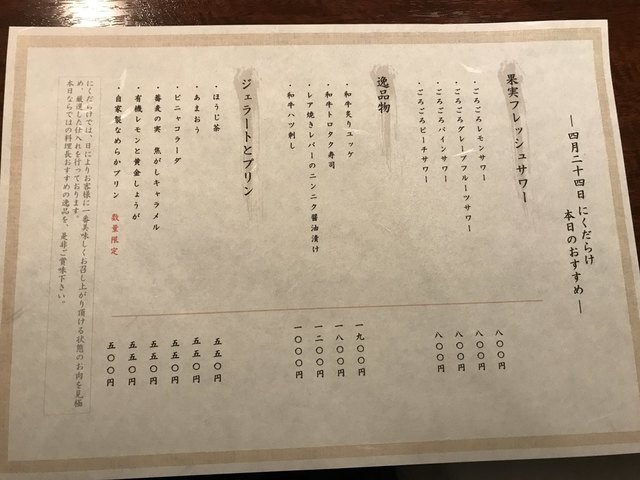 ―四月二十四日 にくだらけ
本日のおすすめ―
果実フレッシュサワー
・ごろごろレモンサワー 八〇〇円
・ごろごろグレープフルーツサワー 八〇〇円
・ごろごろパインサワー 八〇〇円
・ごろごろピーチサワー 八〇〇円
逸品物
・和牛炙りユッケ 一九〇〇円
・和牛トロタク寿司 一八〇〇円
・レア焼きレバーのニンニク醤油漬け 一二〇〇円
・和牛ハツ刺し 一〇〇〇円
ジェラートとプリン
・ほうじ茶 五五〇円
・あまおう 五五〇円
・ピニャコラーダ 五五〇円
・蕎麦の実 焦がしキャラメル 五五〇円
・有機レモンと黄金しょうが 五五〇円
・自家製なめらかプリン 数量限定 五〇〇円
にくだらけでは、日によりお客様に一番美味しくお召し上がり頂ける状態のお肉を見極
め、厳選した仕入れを行っております。
本日ならではの料理長おすすめの逸品を、是非ご賞味下さい。